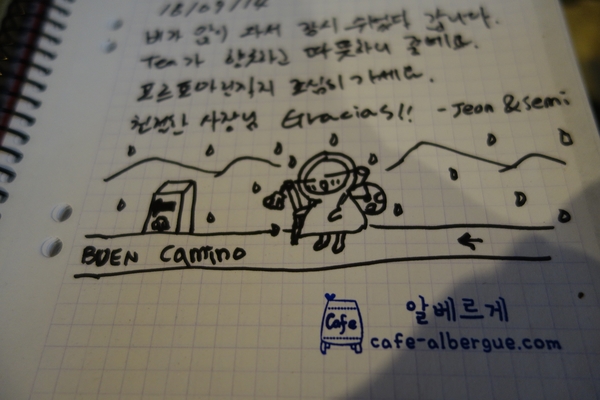 18/09/14
비가 많이 와서 잠시 쉬었다 갑니다.
Tea가 향긋하고 따뜻하니 좋네요.
포르토마린까지 조심히 가세요.
친절한 사장님 Gracias!! - Jeon & Semi
BUEN Camino
Cafe
알베르게
cafe-albergue.com